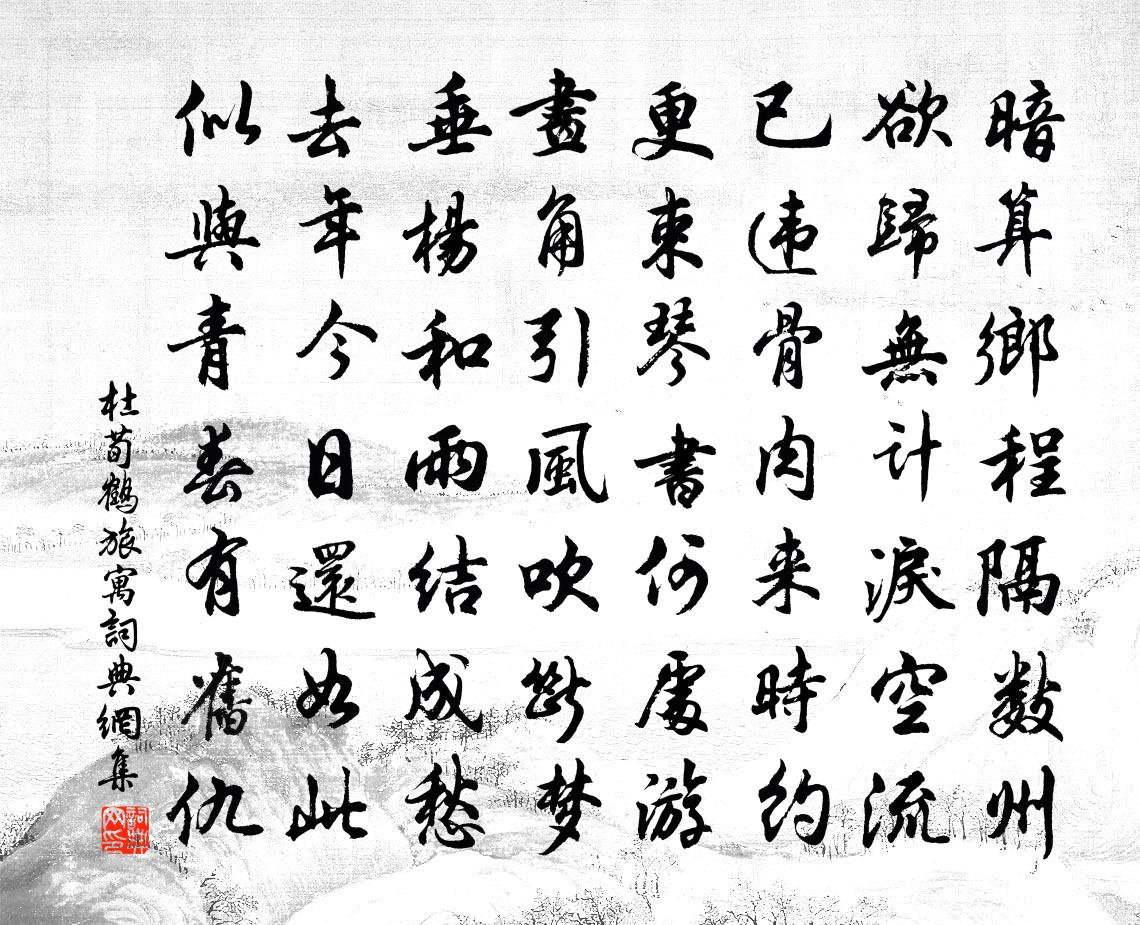 暗算鄉程隔數州
欲歸無計淚空流
已违骨肉来時約
更束琴書何處游
畫角引風吹斷梦
垂楊和雨結成愁
去年今日還如此
似與青春有舊仇
杜荀鶴旅寓詞典網集